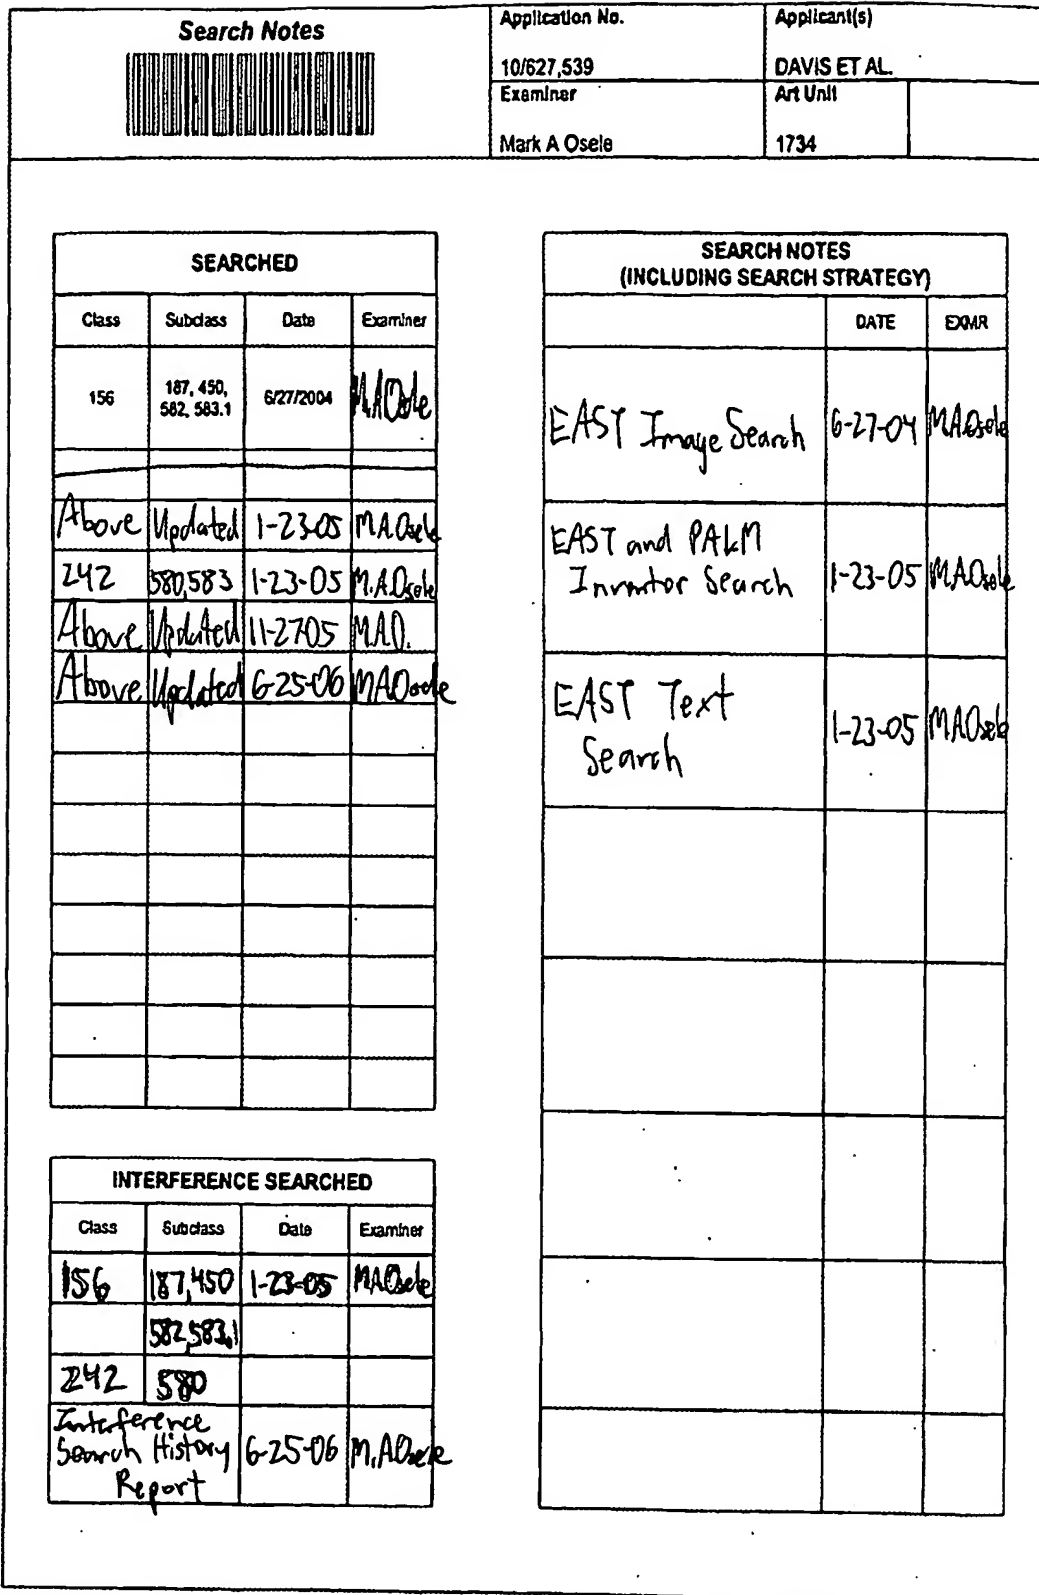 Search Notes
Application No.
10/627,539
Applicant(s)
DAVIS ET AL.
Examiner
Mark A Osele
Art Unit
1734
SEARCHED
Class Subclass Date Examiner
156 187, 450, 6/27/2004 M.A.Osele
582, 583.1
Above Updated 1-23-05 M.A.Osele
242 580,583 1-23-05 M.A.Osele
Above Updated 11-27-05 M.A.O.
Above Updated 6-25-06 M.A.Osele
INTERFERENCE SEARCHED
Class Subclass Date Examiner
156 187,450 1-23-05 M.A.Osele
582,583.1
242 580
Interference
Search History 6-25-06 M.A.Osele
Report
SEARCH NOTES
(INCLUDING SEARCH STRATEGY)
DATE EXMR
EAST Image Search 6-27-04 M.A.Osele
EAST and PALM
Inventor Search 1-23-05 M.A.Osele
EAST Text
Search 1-23-05 M.A.Osele